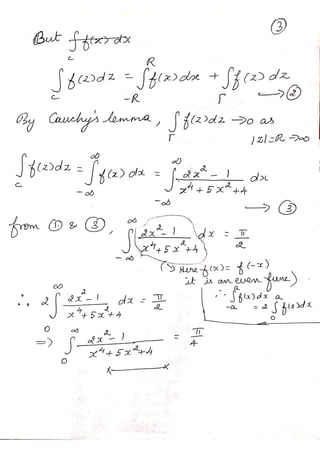 ③
But ∫ f(x) dx
∫_C f(z) dz = ∫_{-R}^{R} f(x) dx + ∫_Γ f(z) dz
→ ②
By Cauchy's lemma, ∫_Γ f(z) dz → 0 as
|z| = R → ∞
∫_C f(z) dz = ∫_{-∞}^{∞} f(x) dx = ∫_{-∞}^{∞} (2x² - 1)/(x⁴ + 5x² + 4) dx
→ ③
from ① & ③, ∫_{-∞}^{∞} (2x² - 1)/(x⁴ + 5x² + 4) dx = π/2
(→ Here f(x) = f(-x)
it is an even func)
∴ 2 ∫_0^∞ (2x² - 1)/(x⁴ + 5x² + 4) dx = π/2
∵ ∫_{-a}^{a} f(x) dx = 2 ∫_0^a f(x) dx
=> ∫_0^∞ (2x² - 1)/(x⁴ + 5x² + 4) = π/4
x———x